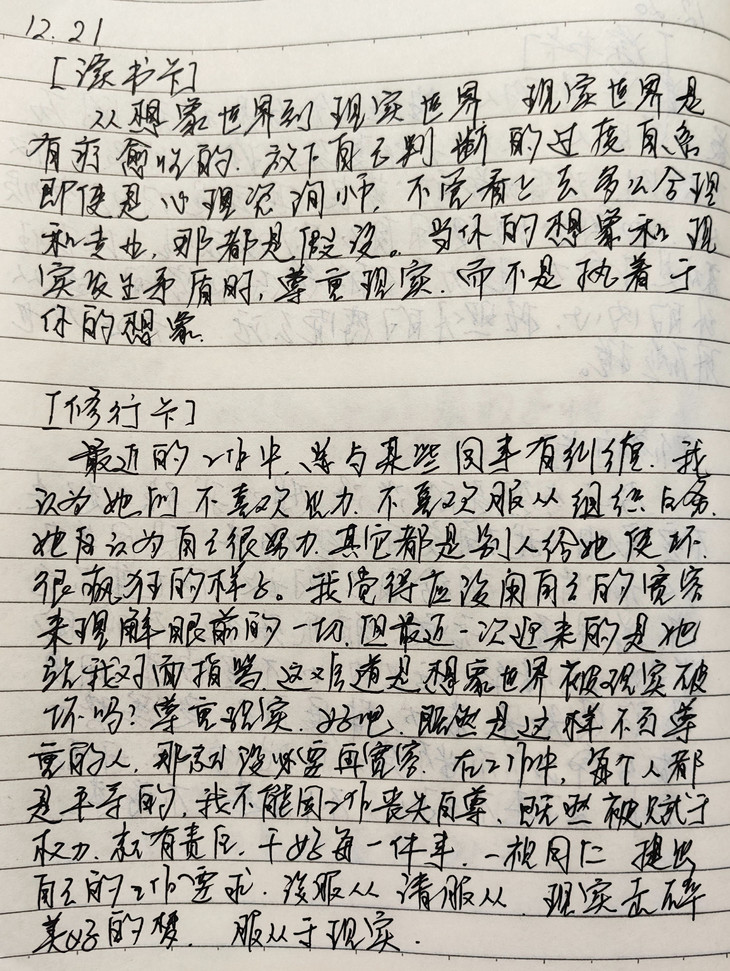 12.21
[读书卡]
从想象世界到现实世界 现实世界是
有疗愈性的. 放下自己判断的过度自恋
即使是心理咨询师, 不管看上去多么合理
和专业, 那都是假设。当你的想象和现
实发生矛盾时, 尊重现实. 而不是执着于
你的想象.
[修行卡]
最近的工作中, 常与某些同事有纠缠. 我
认为她们不喜欢出力. 不喜欢服从组织任务.
她反认为自己很努力. 其它都是别人给她使坏.
很疯狂的样子。我觉得应该用自己的宽容
来理解眼前的一切. 但最近一次迎来的是她
给我对面指骂. 这难道是想象世界被现实破
坏吗? 尊重现实. 好吧. 既然是这样不可尊
重的人. 那就没必要再宽容. 在工作中, 每个人都
是平等的, 我不能因工作丧失自尊. 既然被赋于
权力. 就有责任, 干好每一件事. 一视同仁 提出
自己的工作要求. 该服从请服从. 现实击碎
美好的梦. 服从于现实.